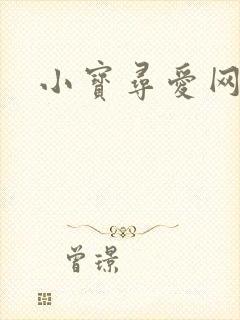 小寶尋愛网
曾璟